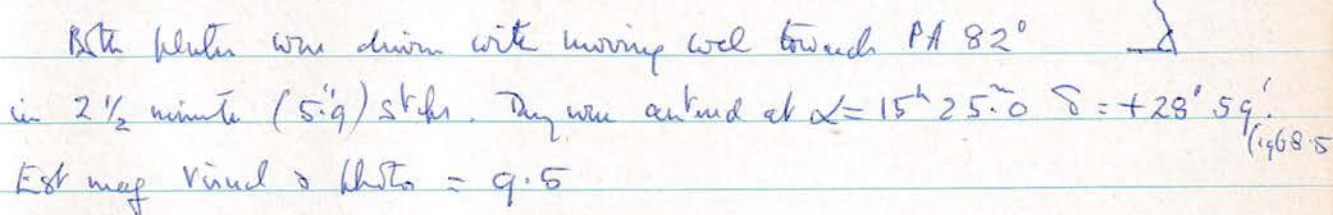 Both plates were driven with moving cool towards PA 82°
in 2 1/2 minute (5".9) steps. They were centred at α = 15ʰ 25ᵐ.0 δ = +28° 59'.
(1968.5
Est mag visual & photo = 9.5